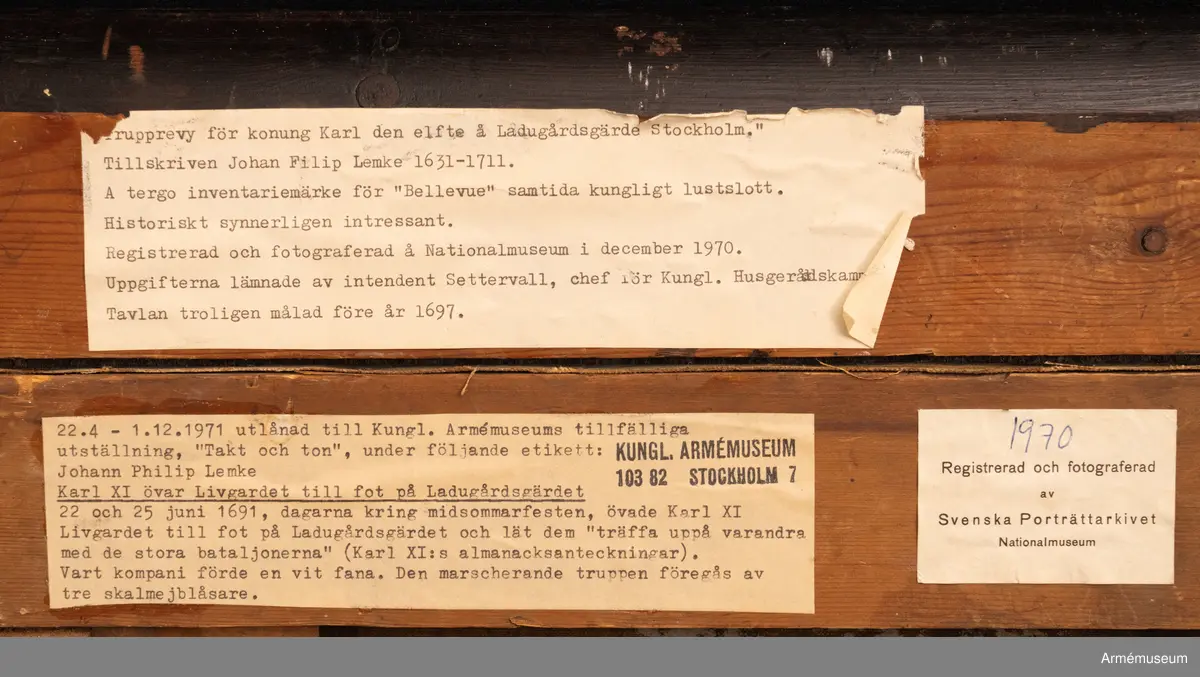 Trupprevy för konung Karl den elfte å Ladugårdsgärde Stockholm."
Tillskriven Johan Filip Lemke 1631-1711.
A tergo inventariemärke för "Bellevue" samtida kungligt lustslott.
Historiskt synnerligen intressant.
Registrerad och fotograferad å Nationalmuseum i december 1970.
Uppgifterna lämnade av intendent Settervall, chef för Kungl. Husgerådskam
Tavlan troligen målad före år 1697.
22.4 - 1.12.1971 utlånad till Kungl. Armémuseums tillfälliga
utställning, "Takt och ton", under följande etikett:
Johann Philip Lemke
Karl XI övar Livgardet till fot på Ladugårdsgärdet
22 och 25 juni 1691, dagarna kring midsommarfesten, övade Karl XI
Livgardet till fot på Ladugårdsgärdet och lät dem "träffa uppå varandra
med de stora bataljonerna" (Karl XI:s almanacksanteckningar).
Vart kompani förde en vit fana. Den marscherande truppen föregås av
tre skalmejblåsare.
KUNGL. ARMÉMUSEUM
103 82 STOCKHOLM 7
1970
Registrerad och fotograferad
av
Svenska Porträttarkivet
Nationalmuseum
Armémuseum